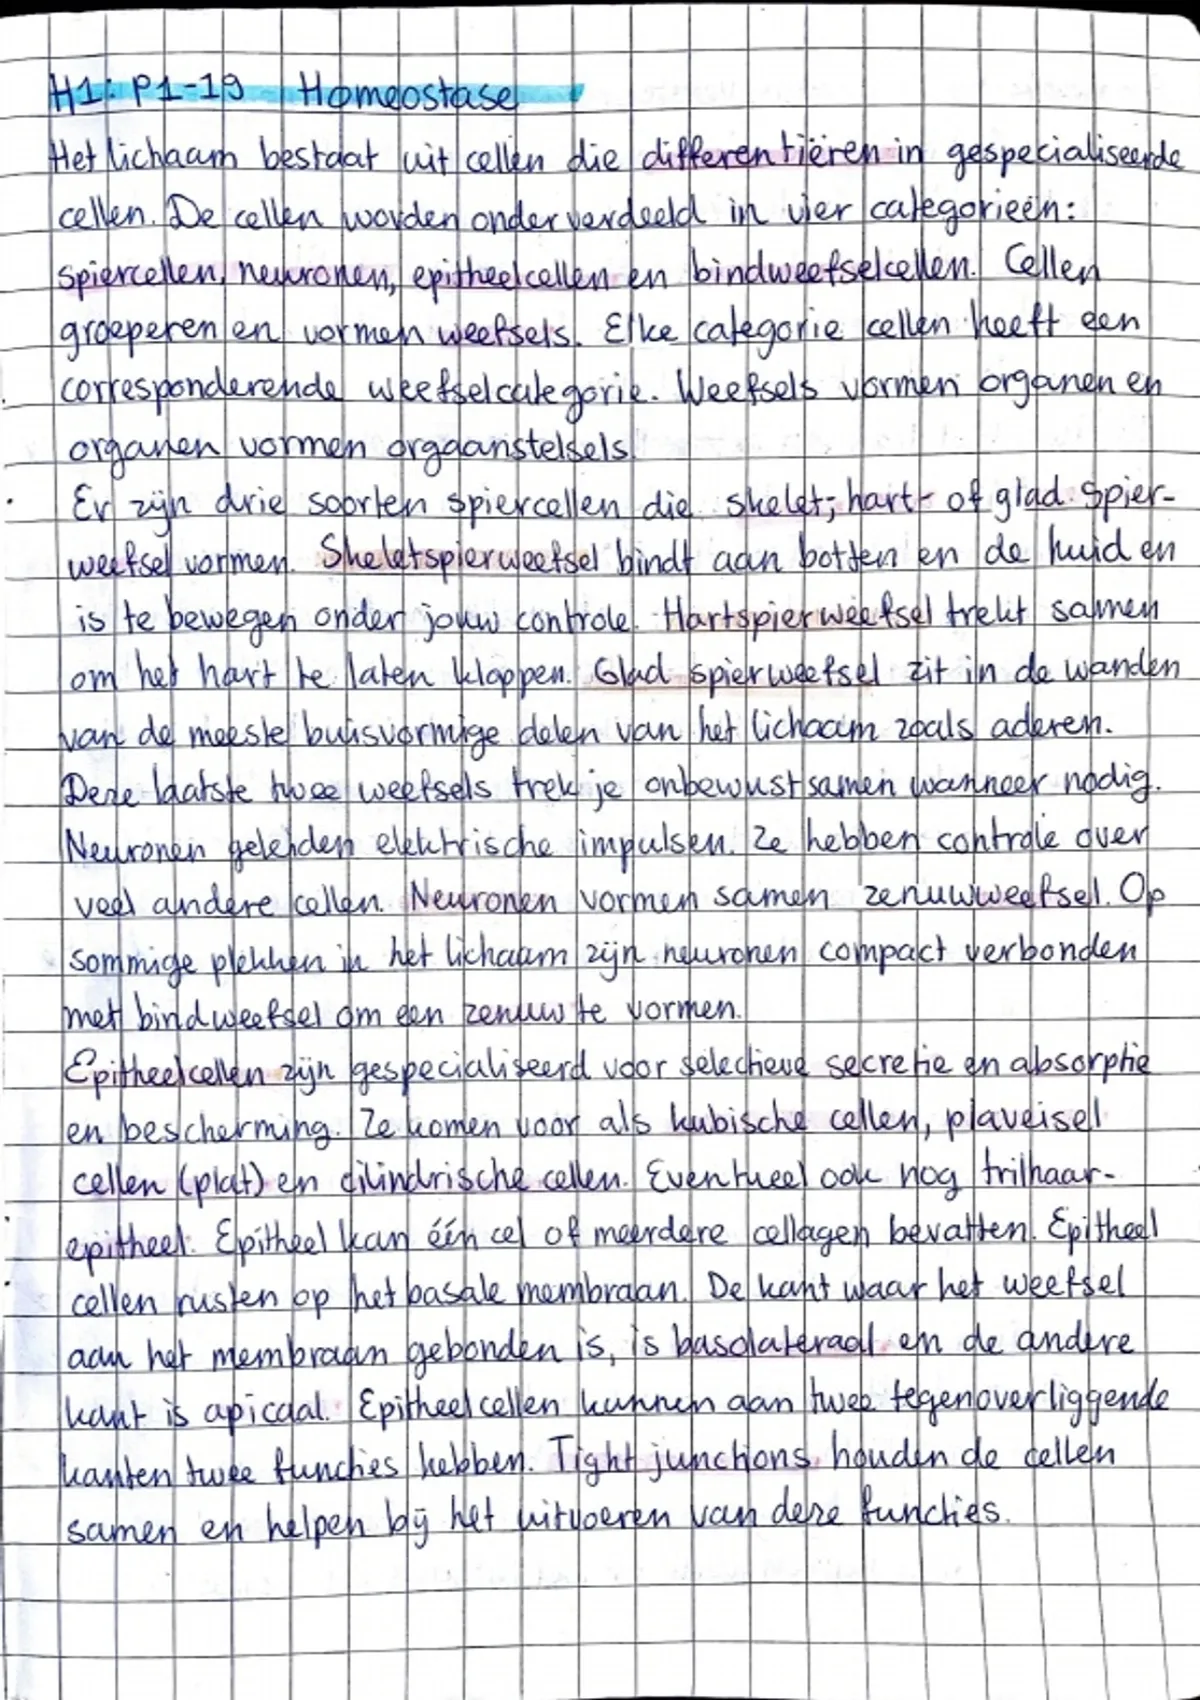 H1: P1-19 Homeostase
Het lichaam bestaat uit cellen die differentiëren in gespecialiseerde
cellen. De cellen worden onderverdeeld in vier categorieën:
spiercellen, neuronen, epitheelcellen en bindweefselcellen. Cellen
groeperen en vormen weefsels. Elke categorie cellen heeft een
corresponderende weefselcategorie. Weefsels vormen organen en
organen vormen orgaanstelsels.
Er zijn drie soorten spiercellen die skelet-, hart- of glad spier-
weefsel vormen. Skeletspierweefsel bindt aan botten en de huid en
is te bewegen onder jouw controle. Hartspierweefsel trekt samen
om het hart te laten kloppen. Glad spierweefsel zit in de wanden
van de meeste buisvormige delen van het lichaam zoals aderen.
Deze laatste twee weefsels trek je onbewust samen wanneer nodig.
Neuronen geleiden elektrische impulsen. Ze hebben controle over
veel andere cellen. Neuronen vormen samen zenuwweefsel. Op
sommige plekken in het lichaam zijn neuronen compact verbonden
met bindweefsel om een zenuw te vormen.
Epitheelcellen zijn gespecialiseerd voor selectieve secretie en absorptie
en bescherming. Ze komen voor als kubische cellen, plaveisel
cellen (plat) en cilindrische cellen. Eventueel ook nog trilhaar-
epitheel. Epitheel kan één cel of meerdere cellagen bevatten. Epitheel
cellen rusten op het basale membraan. De kant waar het weefsel
aan het membraan gebonden is, is basolateraal en de andere
kant is apicaal. Epitheelcellen kunnen aan twee tegenoverliggende
kanten twee functies hebben. Tight junctions houden de cellen
samen en helpen bij het uitvoeren van deze functies.